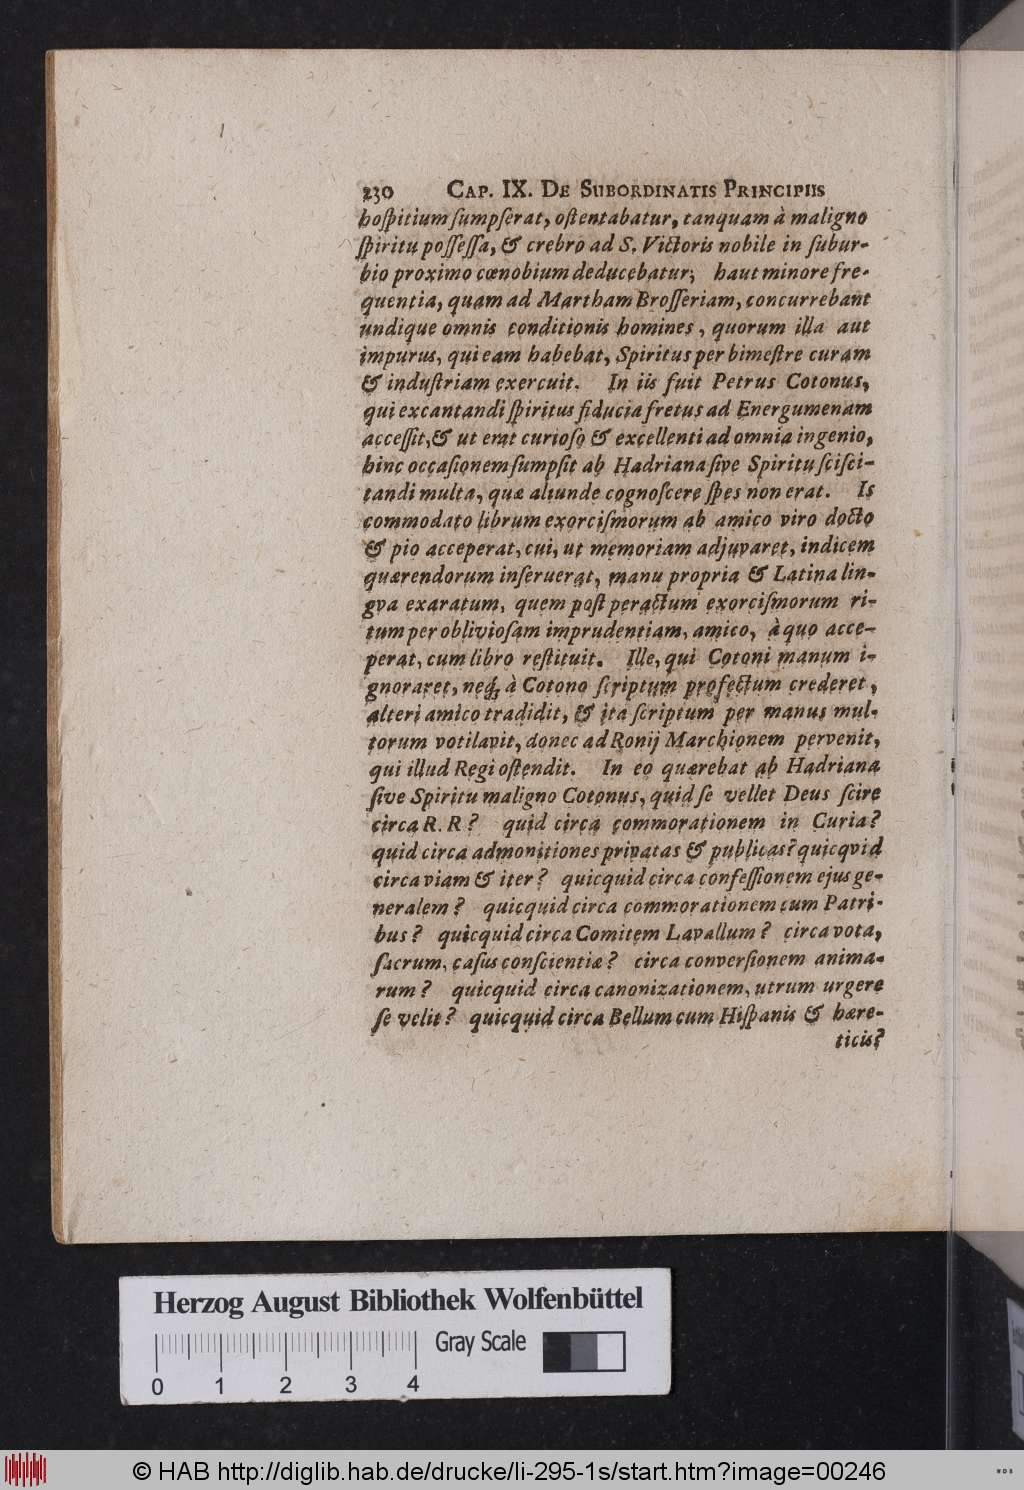 230 CAP. IX. DE SUBORDINATIS PRINCIPIIS
hoſpitium ſumpſerat, oſtentabatur, tanquam à maligno
ſpiritu poſſeſſa, & crebro ad S. Victoris nobile in ſubur-
bio proximo cœnobium deducebatur; haut minore fre-
quentia, quam ad Martham Broſſeriam, concurrebant
undique omnis conditionis homines, quorum illa aut
impurus, qui eam habebat, Spiritus per bimeſtre curam
& induſtriam exercuit. In iis fuit Petrus Cotonus,
qui excantandi ſpiritus fiducia fretus ad Energumenam
acceſſit, & ut erat curioſo & excellenti ad omnia ingenio,
hinc occaſionem ſumpſit ab Hadriana ſive Spiritu ſciſci-
tandi multa, quæ aliunde cognoſcere ſpes non erat. Is
commodato librum exorciſmorum ab amico viro docto
& pio acceperat, cui, ut memoriam adjuvaret, indicem
quærendorum inſeruerat, manu propria & Latina lin-
gva exaratum, quem poſt peractum exorciſmorum ri-
tum per oblivioſam imprudentiam, amico, à quo acce-
perat, cum libro reſtituit. Ille, qui Cotoni manum i-
gnoraret, neq; à Cotono ſcriptum profectum crederet,
alteri amico tradidit, & ita ſcriptum per manus mul-
torum votilavit, donec ad Ronij Marchionem pervenit,
qui illud Regi oſtendit. In eo quærebat ab Hadriana
ſive Spiritu maligno Cotonus, quid ſe vellet Deus ſcire
circa R. R? quid circa commorationem in Curia?
quid circa admonitiones privatas & publicas? quicqvid
circa viam & iter? quicquid circa confeſſionem ejus ge-
neralem? quicquid circa commorationem cum Patri-
bus? quicquid circa Comitem Lavallum? circa vota,
ſacrum, caſus conſcientiæ? circa converſionem anima-
rum? quicquid circa canonizationem, utrum urgere
ſe velit? quicquid circa Bellum cum Hiſpanis & hære-
ticis?
Herzog August Bibliothek Wolfenbüttel
Gray Scale
0 1 2 3 4
© HAB http://diglib.hab.de/drucke/li-295-1s/start.htm?image=00246